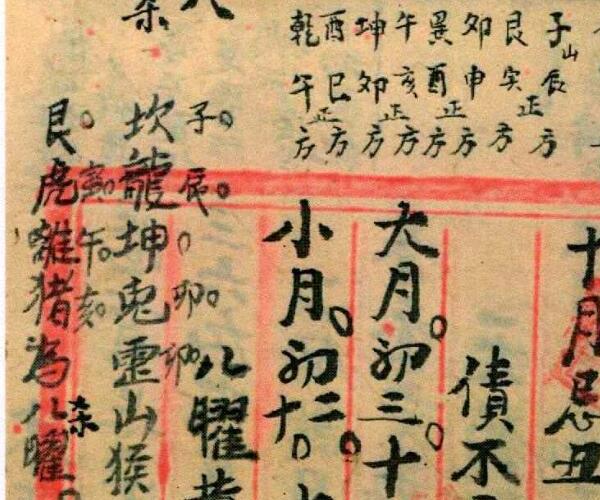 子山辰正方
艮寅方
卯申正方
巽酉方
午亥正方
坤卯方
酉巳正方
乾午方
十月忌丑
債不
大月初三十
小月初二十
八曜
子辰卯卯
坎龍坤兔靈山猴
寅午亥
艮虎離猪為八曜